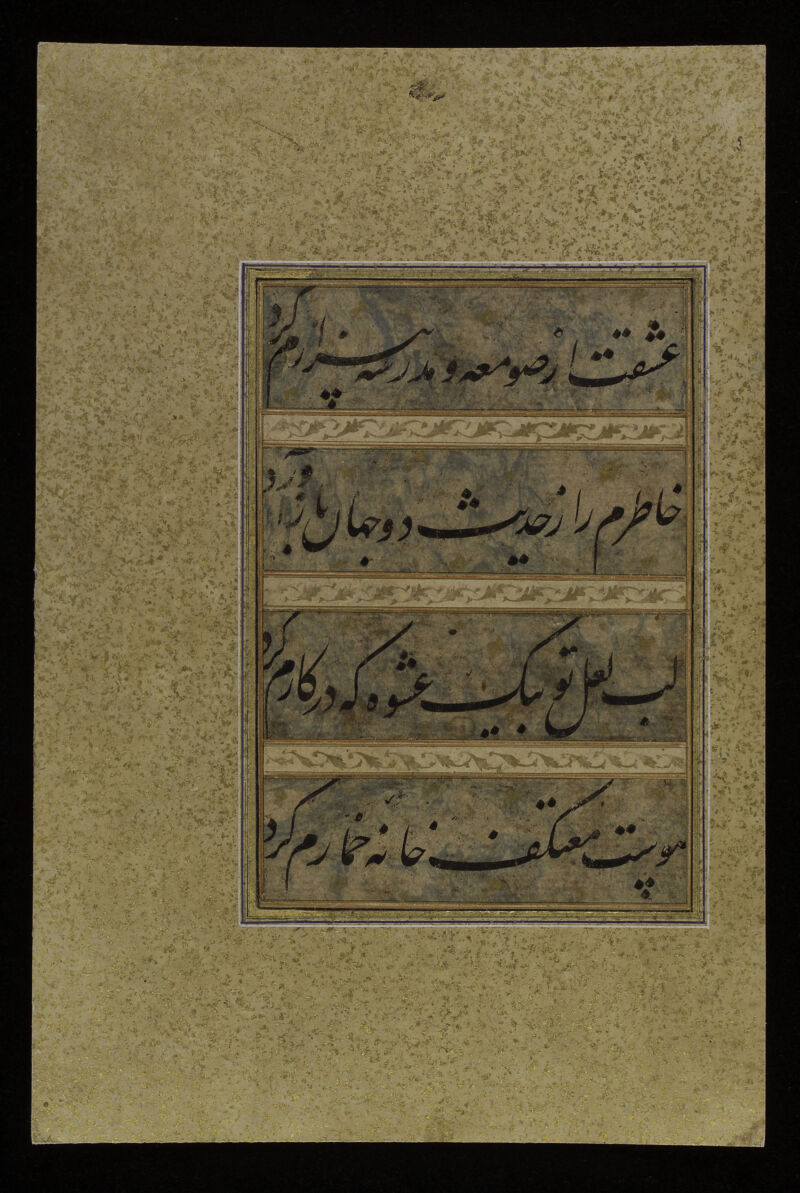 عشقت از صومعه و مدرسه بیزارم کرد
خاطرم را ز حدیث دو جهان باز آورد
لب لعل تو بیک عشوه که در کارم کرد
معتکف خانه خمارم کرد